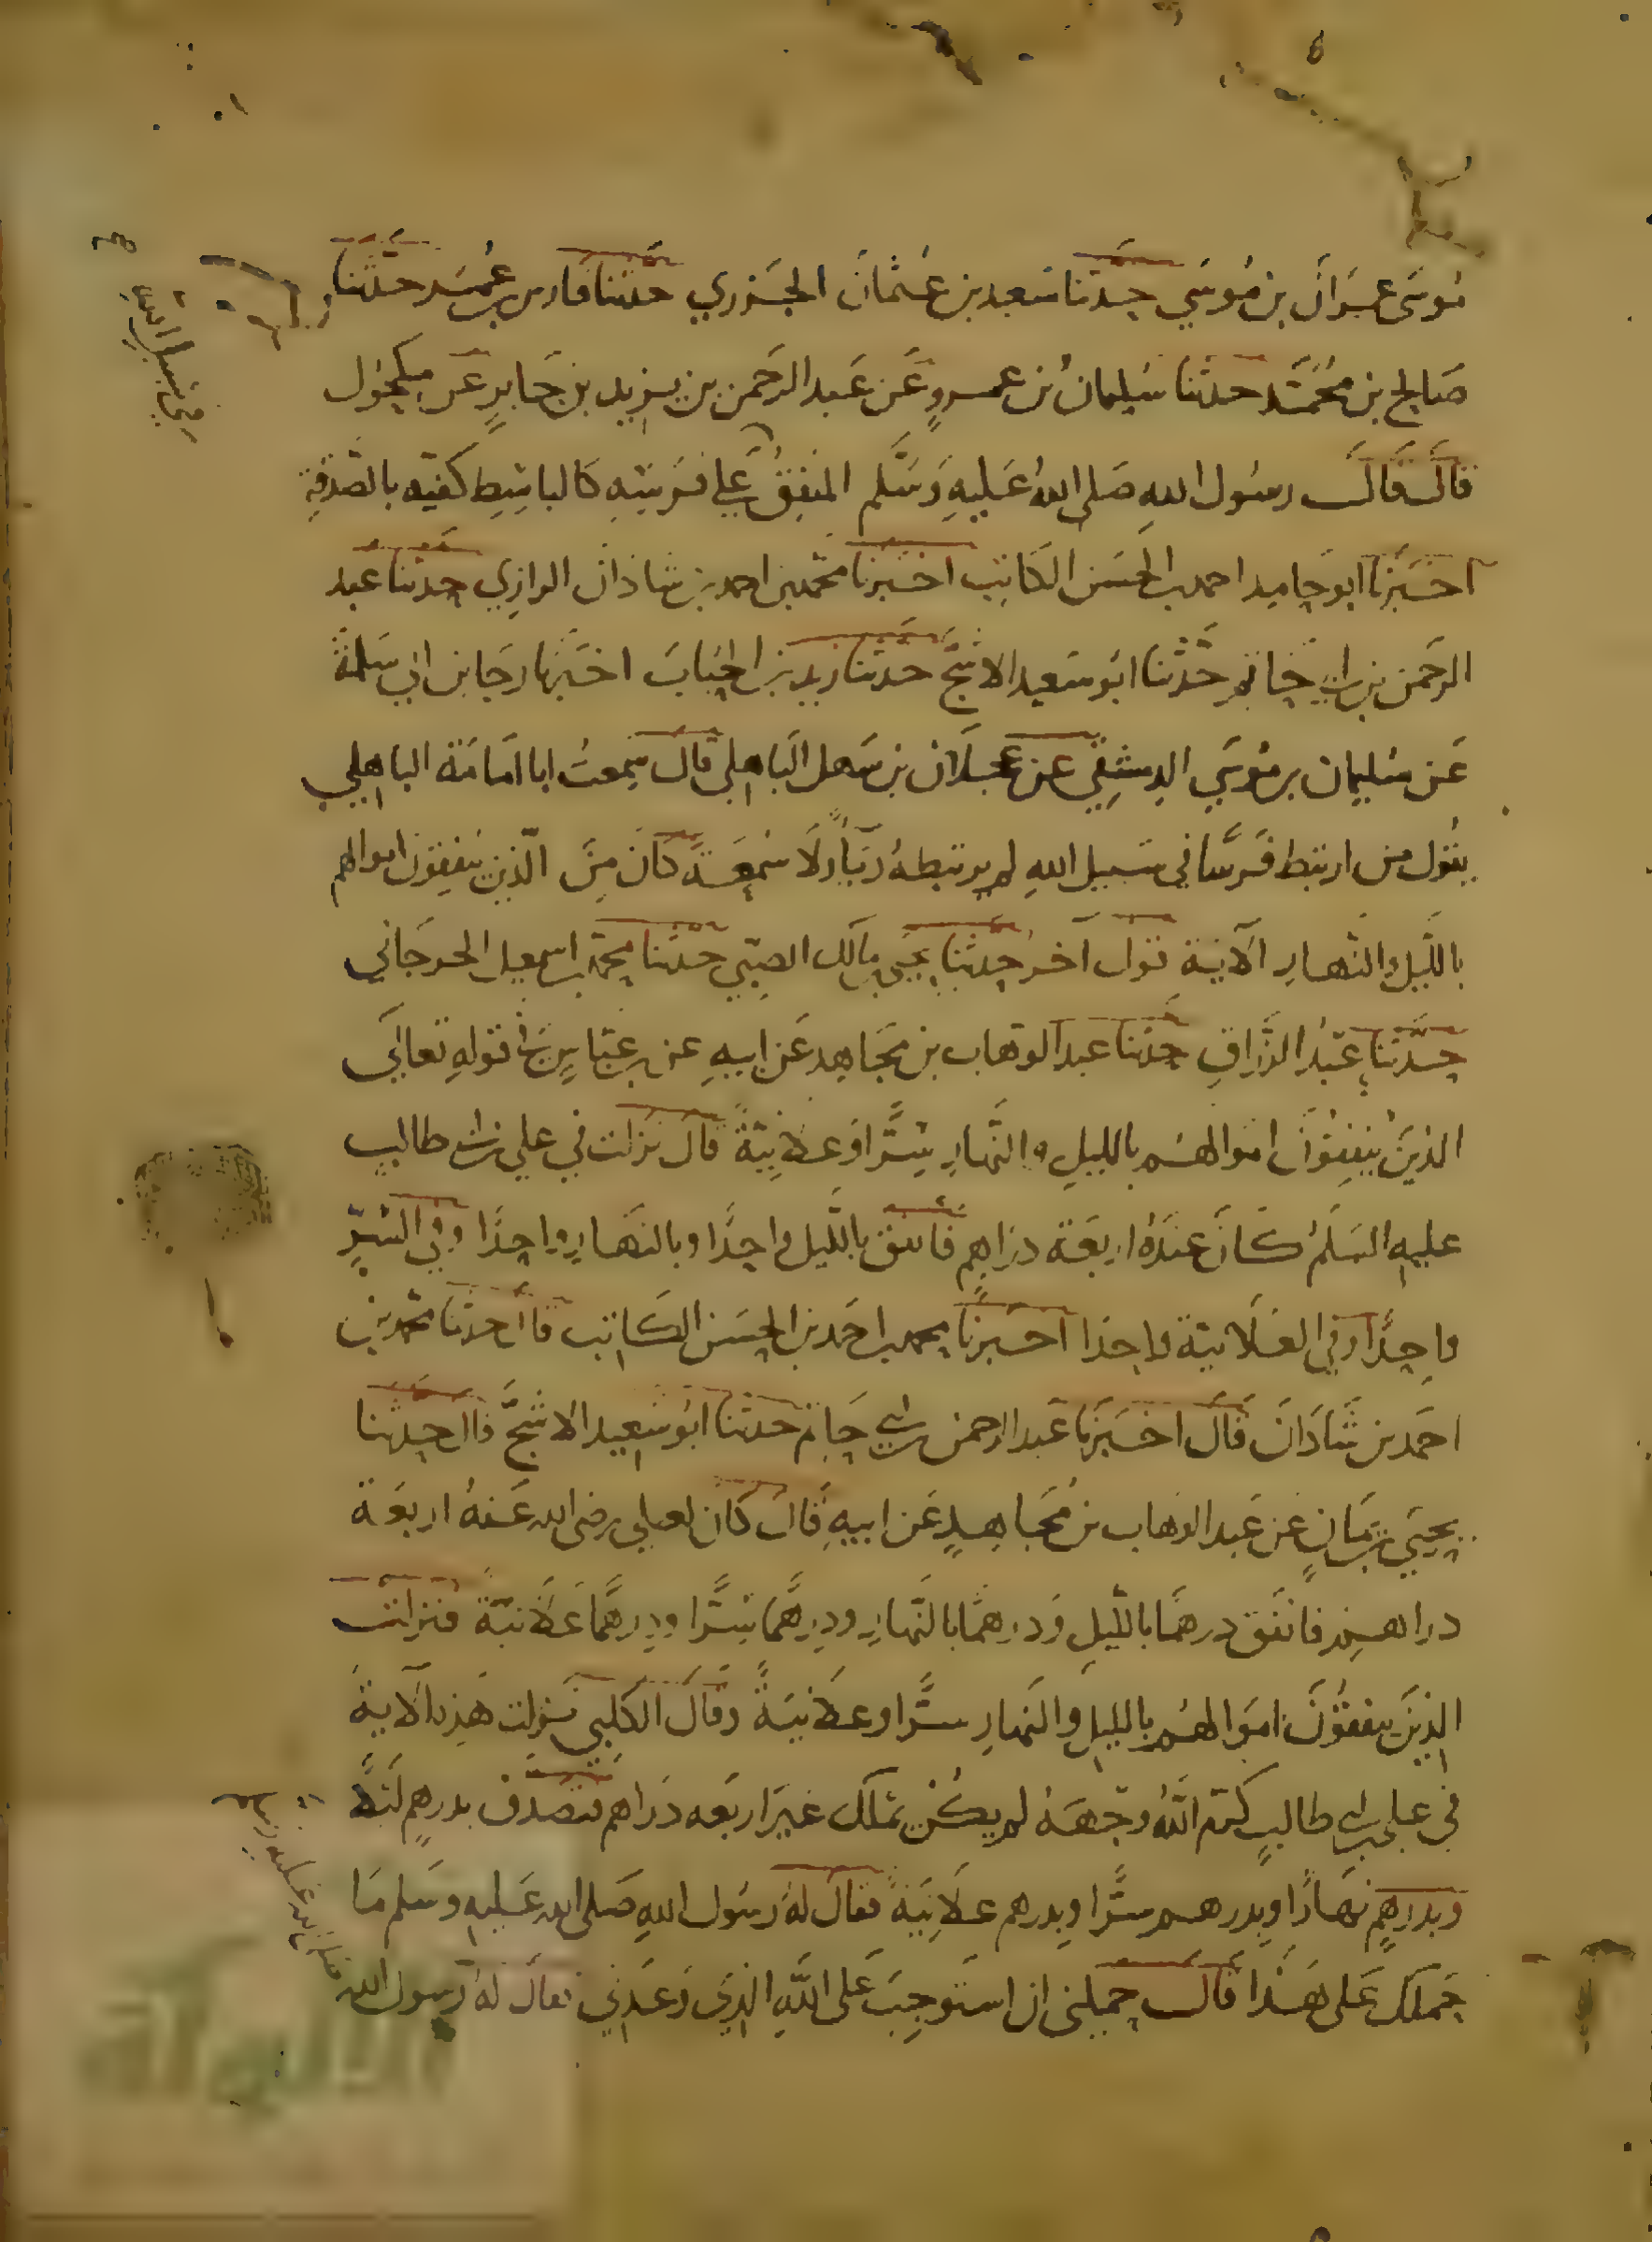 موسى عمران بن موسى حدثنا سعيد بن عثمان الجزري حدثنا فارس بن عمر حدثنا
صالح بن محمد حدثنا سليمان بن عمرو عن عبد الرحمن بن يزيد بن جابر عن مكحول
قال قال رسول الله صلى الله عليه وسلم المنفق على فرسه كالباسط كفيه بالصدقة
في سبيل الله
اخبرنا ابو حامد احمد بن الحسن الكاتب اخبرنا محمد بن احمد بن شاذان الرازي حدثنا عبد
الرحمن بن ابي حاتم حدثنا ابو سعيد الاشج حدثنا زيد بن الحباب اخبرنا رجا بن ابي سلمة
عن سليمان بن موسى الدمشقي عن عجلان بن سهل الباهلي قال سمعت ابا امامة الباهلي
يقول من ارتبط فرسا في سبيل الله لم يرتبطه رياء ولا سمعة كان من الذين ينفقون اموالهم
بالليل والنهار الآية قول آخر حدثنا يحيى بن مالك الضبي حدثنا محمد بن اسمعيل الجرجاني
حدثنا عبد الرزاق حدثنا عبد الوهاب بن مجاهد عن ابيه عن بن عباس في قوله تعالى
الذين ينفقون اموالهم بالليل والنهار سرا وعلانية قال نزلت في علي بن ابي طالب
عليه السلم كان عنده اربعة دراهم فانفق بالليل واحدا وبالنهار واحدا وفي السر
واحدا وفي العلانية واحدا اخبرنا محمد بن احمد بن الحسن الكاتب قال حدثنا محمد بن
احمد بن شاذان قال اخبرنا عبد الرحمن بن ابي حاتم حدثنا ابو سعيد الاشج قال حدثنا
يحيى بن يمان عن عبد الوهاب بن مجاهد عن ابيه قال كان لعلي رضى الله عنه اربعة
دراهم فانفق درهما بالليل ودرهما بالنهار ودرهما سرا ودرهما علانية فنزلت
الذين ينفقون اموالهم بالليل والنهار سرا وعلانية وقال الكلبي نزلت هذه الآية
في علي بن ابي طالب كرم الله وجهه لم يكن يملك غير اربعه دراهم فتصدق بدرهم ليلا
وبدرهم نهارا وبدرهم سرا وبدرهم علانية فقال له رسول الله صلى الله عليه وسلم ما
حملك على هذا قال حملني ان استوجب على الله الذي وعدني فقال له رسول الله